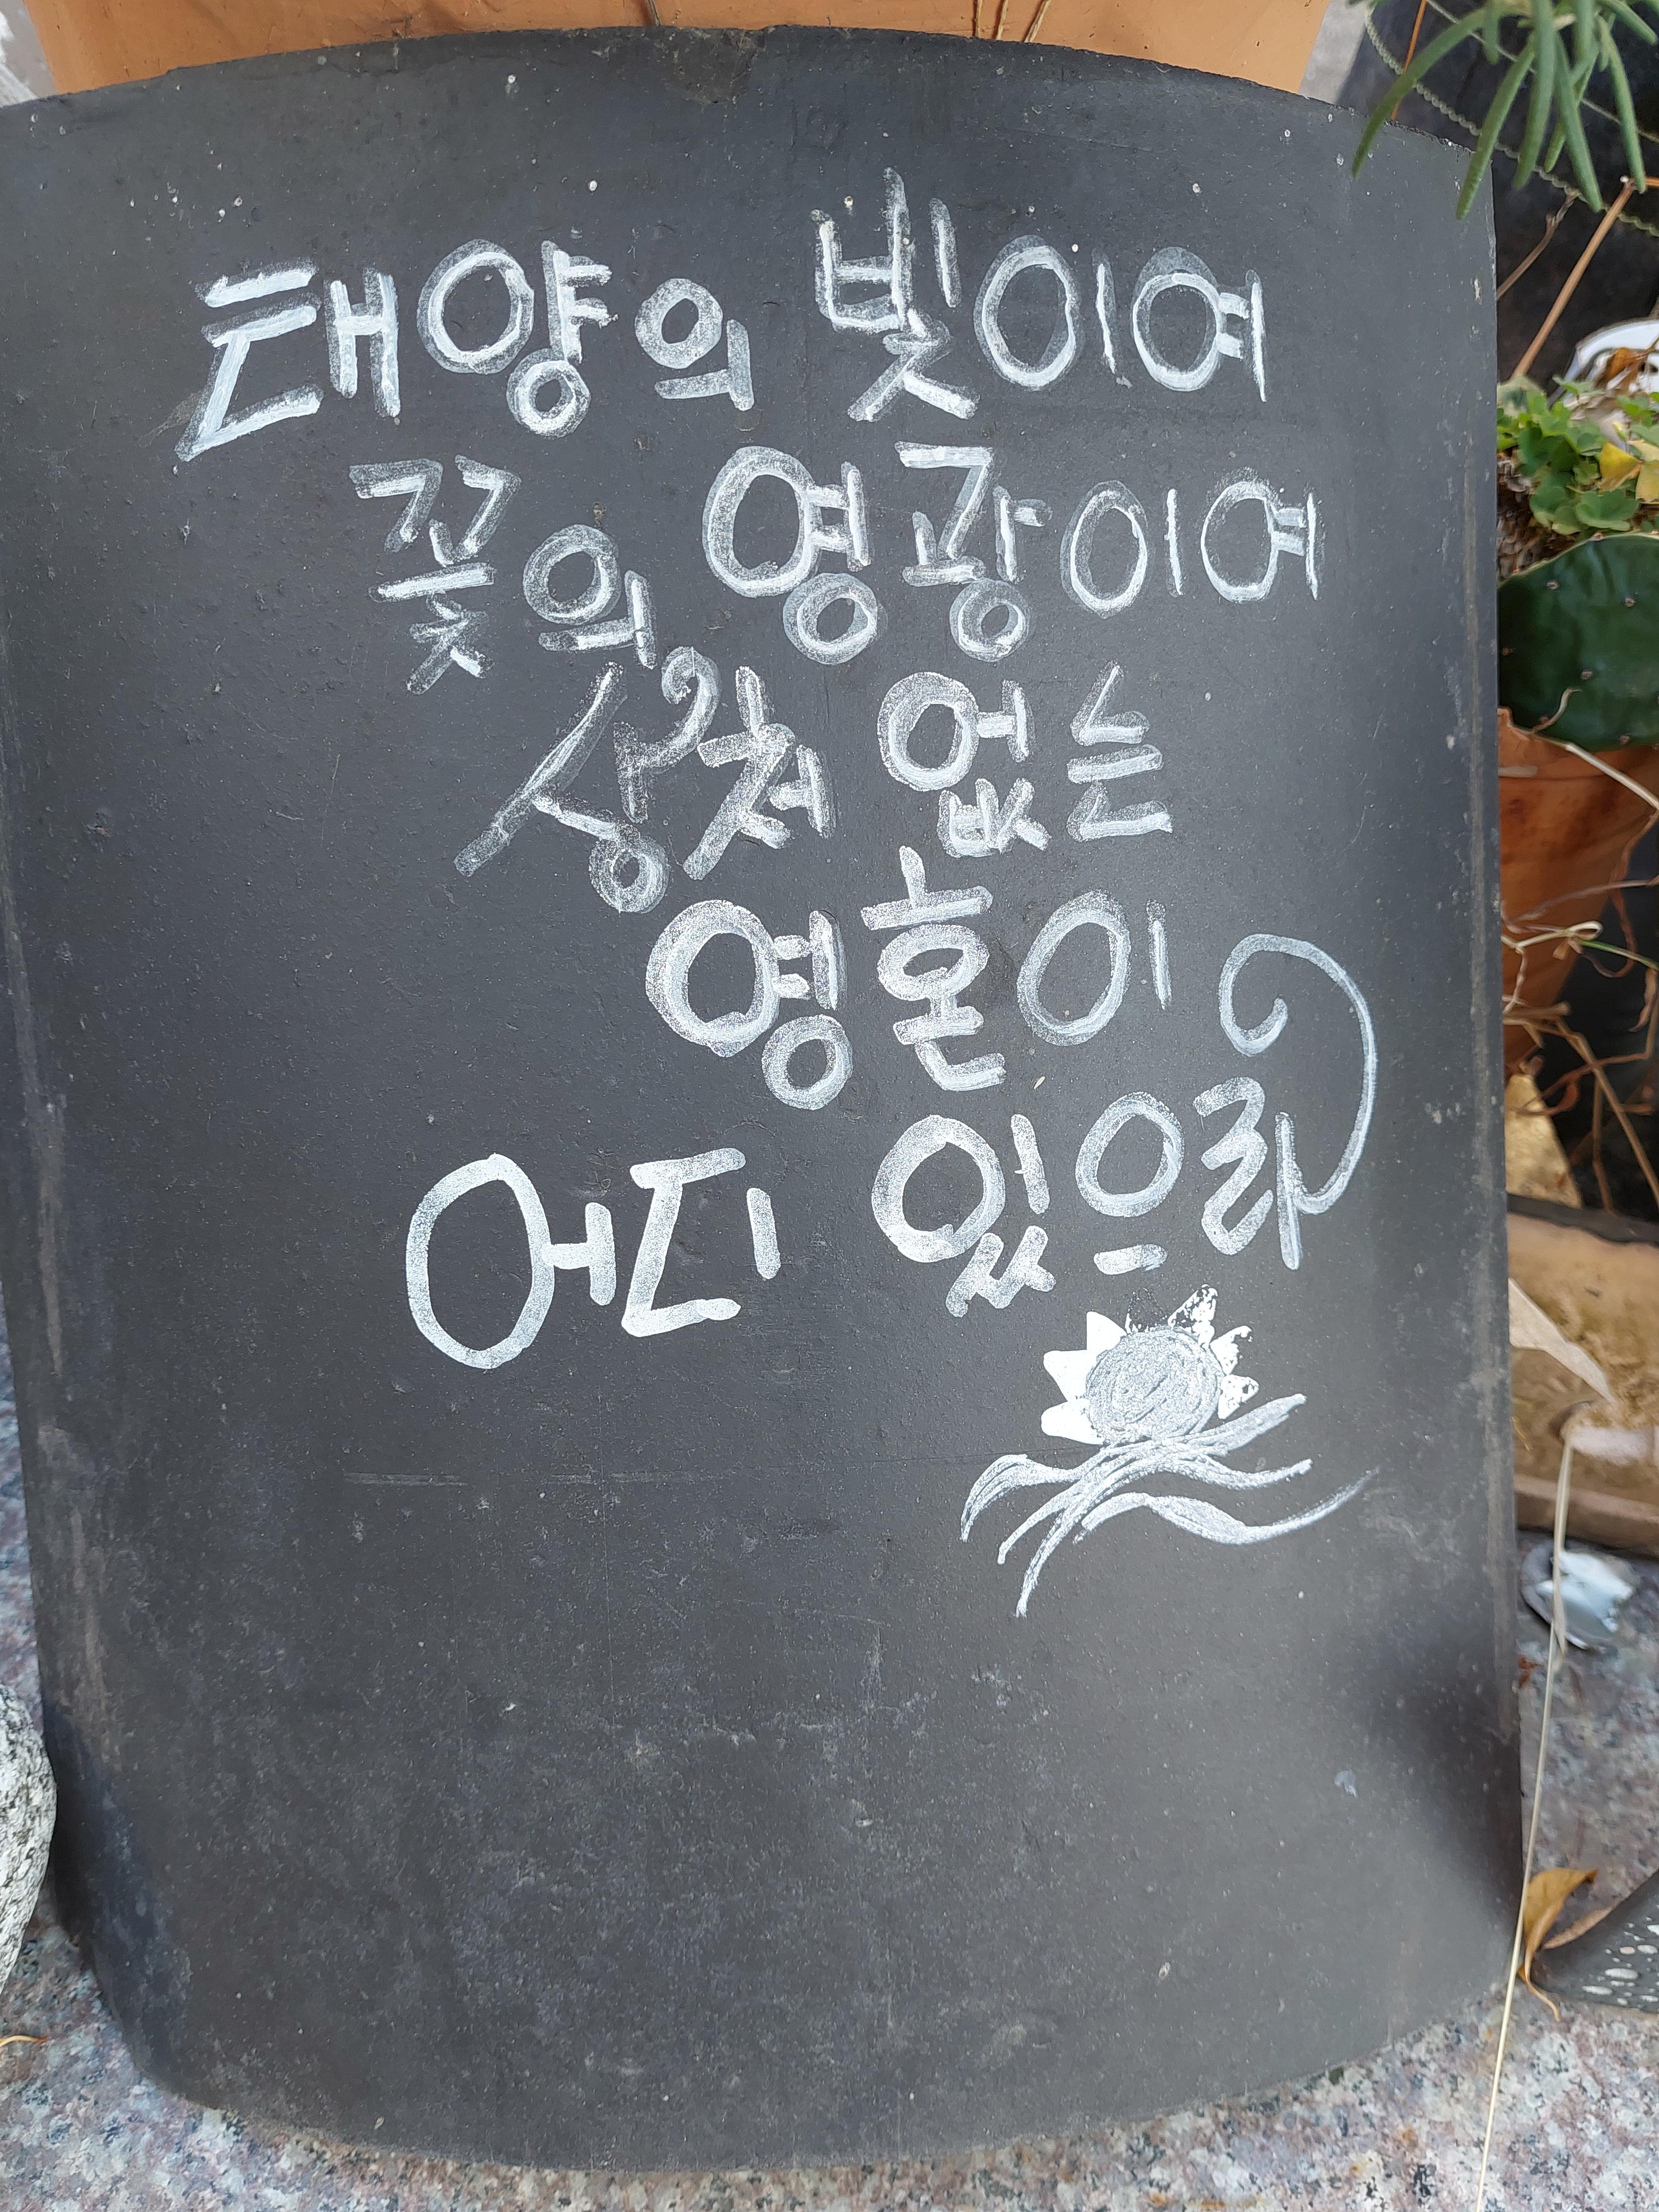 태양의 빛이여
꽃의 영광이여
상처 없는
영혼이
어디 있으랴